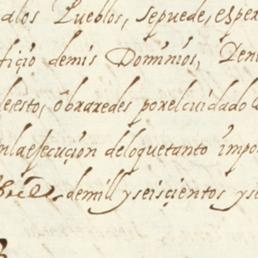 alos Pueblos, sepuede, esper
ficio demis Dominios, Den
deesto, obraredes porelcuidado
enlaejecucion deloquetanto impo
demill y seiscientos y se